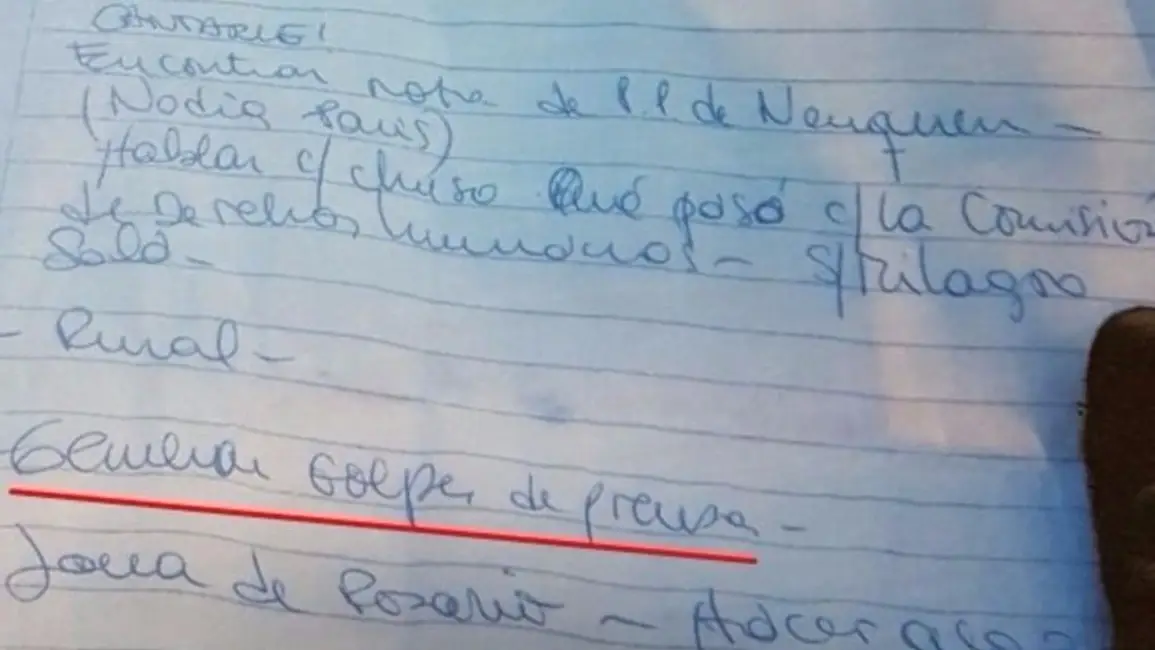 CANTARLE!
Encontrar nota de P.P. de Neuquen -
(Nodia Paris)
Hablar c/ chuso Qué pasó c/ la Comisión
de Derechos humanos - S/Milagro
Sala -
- Rural -
Generar Golpes de prensa -
Joea de Rosario - Hacer algo